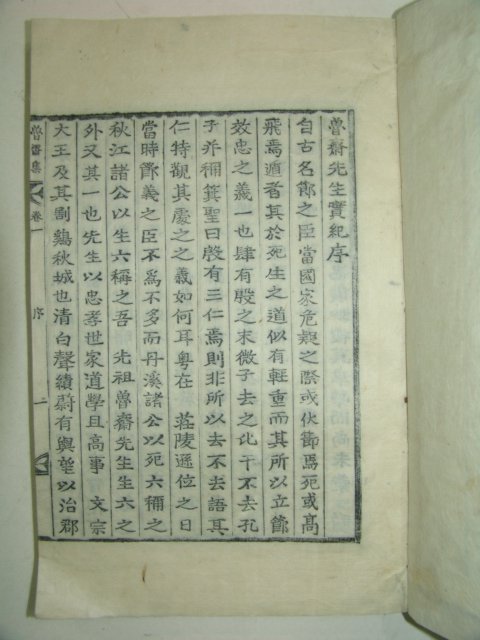 魯齋先生實紀序
自古名節之臣當國家危疑之際或伏節焉死或高
飛焉遁者其於死生之道似有輕重而其所以立節
效忠之義一也肆有殷之末微子去之比干不去孔
子并稱箕聖曰殷有三仁焉則非所以去不去語其
仁特觀其處之之義如何耳粤在 莊陵遜位之日
當時節義之臣不爲不多而丹溪諸公以死六稱之
秋江諸公以生六稱之吾 先祖魯齋先生生六之
外又其一也先生以忠孝世家道學且高事 文宗
大王及其割鷄秋城也清白聲績蔚有輿望以治郡
魯齋集 卷一 序 一